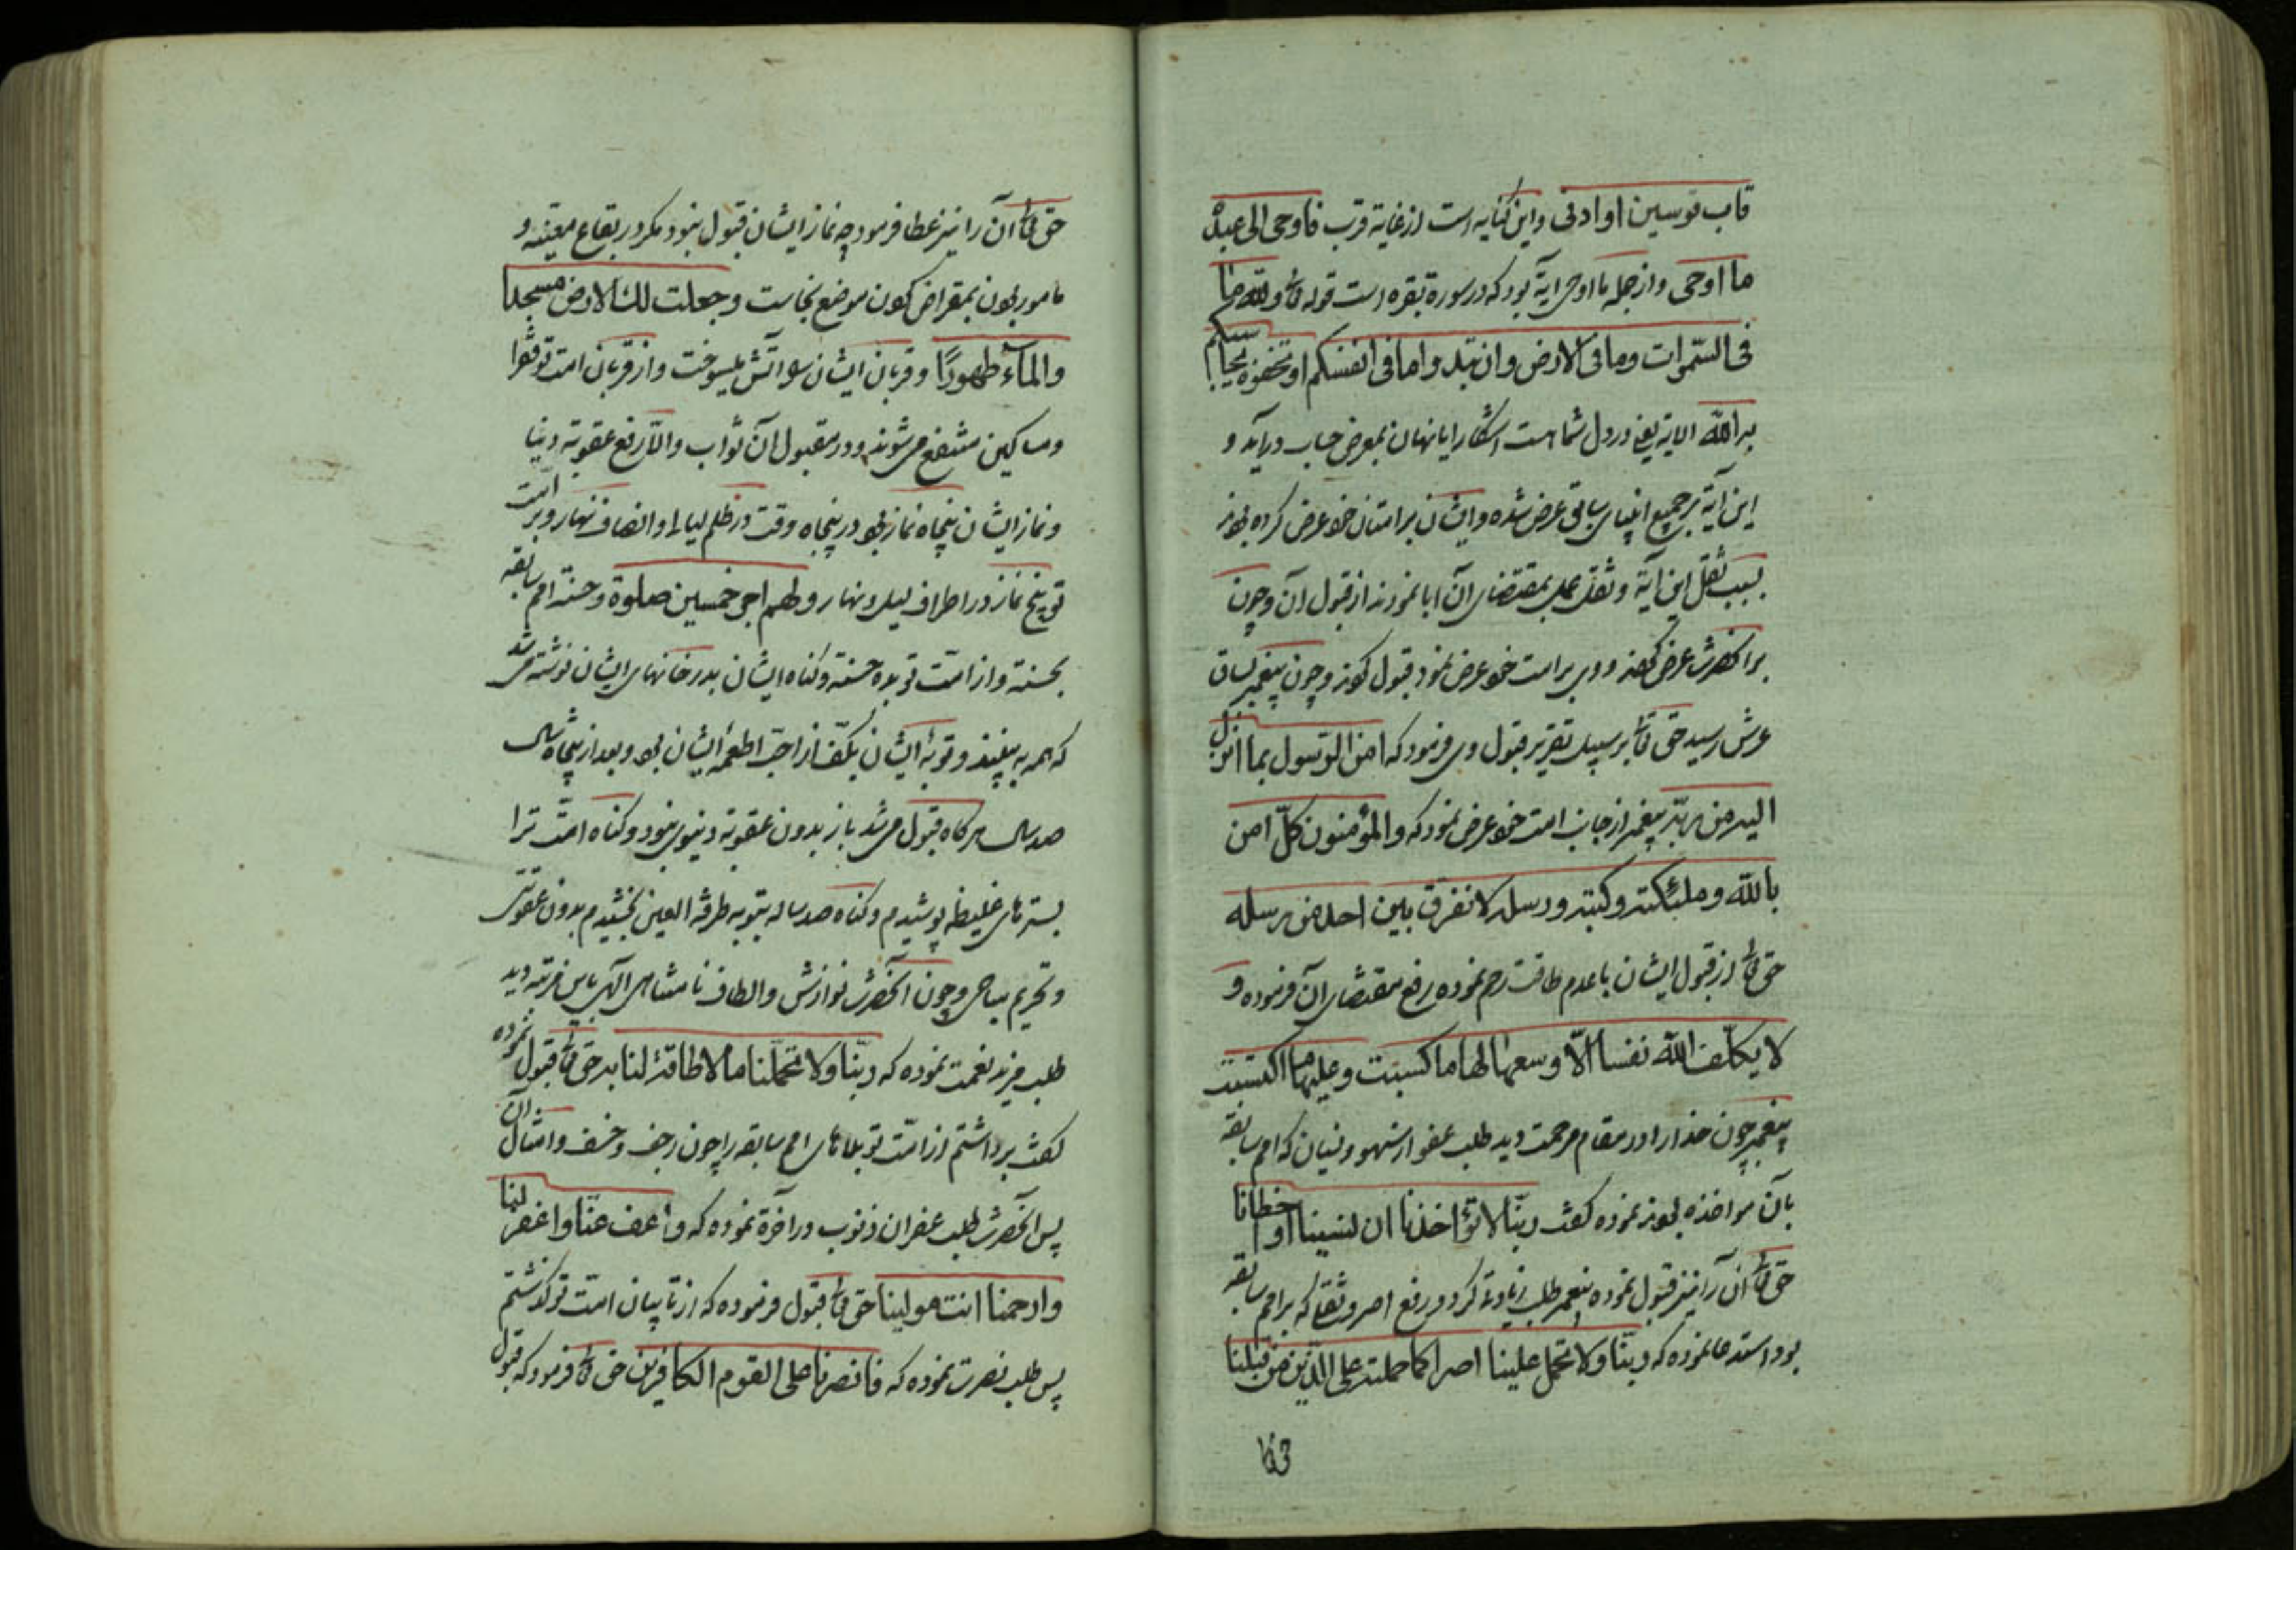 قاب قوسین او ادنی و این کنایه است از غایة قرب فاوحی الی عبده
ما اوحی و از جمله ما اوحی ایة بود که در سورة بقره است قوله تع ولله ما
فی السّموات وما فی الارض وان تبدوا ما فی انفسکم او تخفوه یحاسبکم
به الله الایة یعنی در دل شماست اشکارا یا نهان بمعرض حساب درآید و
این آیة بر جمیع انبیای سابق عرض شده و ایشان بر امتان خود عرض کرده بودند
بسبب ثقل این آیة و ثقل عمل بمقتضای آن ابا نمودند از قبول آن و چون
بر آنحضرت عرض کردند و وی بر امت خود عرض نمود قبول کردند و چون پیغمبر بساق
عرش رسید حق تع بر سبیل تقریر قبول وی فرمود که امن الرّسول بما انزل
الیه من ربّه پیغمبر از جانب امت خود عرض نمود که والمؤمنون کلّ امن
بالله وملئکته وکتبه ورسله لا نفرّق بین احد من رسله
حق تع از قبول ایشان با عدم طاقت رحم نموده رفع مقتضای آن فرموده و
لا یکلّف الله نفسا الّا وسعها لها ما کسبت وعلیها ما اکتسبت
پیغمبر چون خدا را در مقام مرحمت دید طلب عفو از سهو و نسیان که امم سابقه
بآن مواخذه بودند نموده گفت ربّنا لا تؤاخذنا ان نسینا او اخطانا
حق تع آن را نیز قبول نموده پیغمبر طلب زیادة کرد و رفع اصر و ثقل که بر امم سابقه
بود استدعا نموده که ربّنا ولا تحمل علینا اصرا کما حملته علی الّذین من قبلنا
حق تع
حق تع آن را نیز عطا فرمود چه نماز ایشان قبول نبود مگر در بقاع معیّنه و
مامور بودن بمقراض کردن موضع نجاست وجعلت لک الارض مسجدا
والماء طهورًا و قربان ایشان را آتش میسوخت و از قربان امت تو فقرا
و مساکین منتفع می شوند و در مقبول آن ثواب والّا رفع عقوبة دنیا
و نماز ایشان پنجاه نماز بود در پنجاه وقت در ظلم لیالی و انصاف نهار و بر امت
تو پنج نماز در اطراف لیل و نهار ولهم اجر خمسین صلوة و حسنه امم سابقه
بحسنة و از امّت تو بده حسنة و گناه ایشان بدر خانهای ایشان نوشته می شد
که همه به بینند و توبهٔ ایشان بکف از احبّ اطعمهٔ ایشان بود و بعد از پنجاه سال
صد سال هرگاه قبول می شد باز بدون عقوبة دنیوی نبود و گناه امّت ترا
بسترهای غلیظه پوشیدم و گناه صد ساله بتوبه طرفة العین بخشیدم بدون عقوبتی
و تحریم مباحی و چون آنحضرت نوازش و الطاف نامتناهی الهی باین مرتبه دید
طلب مزید نعمت نموده که ربّنا ولا تحمّلنا ما لا طاقة لنا به حق تع قبول نموده
گفت برداشتم از امّت تو بلاهای امم سابقه را چون رجف و خسف و امثال آن
پس آنحضرت طلب غفران ذنوب در آخرة نموده که واعف عنّا واغفر لنا
وارحمنا انت مولینا حق تع قبول فرموده که از تائبان امت تو گذشتم
پس طلب نصرت نموده که فانصرنا علی القوم الکافرین حق تع فرمود که قبول